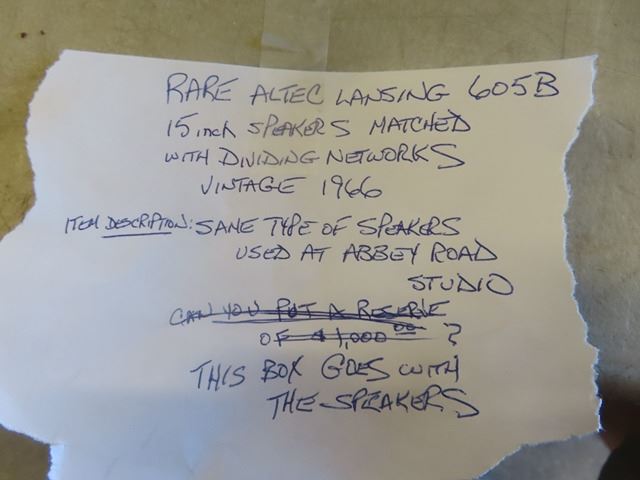 RARE ALTEC LANSING 605B
15 inch SPEAKERS MATCHED
WITH DIVIDING NETWORKS
VINTAGE 1966
ITEM DESCRIPTION: SANE TYPE OF SPEAKERS
USED AT ABBEY ROAD
STUDIO
CAN YOU PUT A RESERVE
OF $1,000.00 ?
THIS BOX GOES WITH
THE SPEAKERS